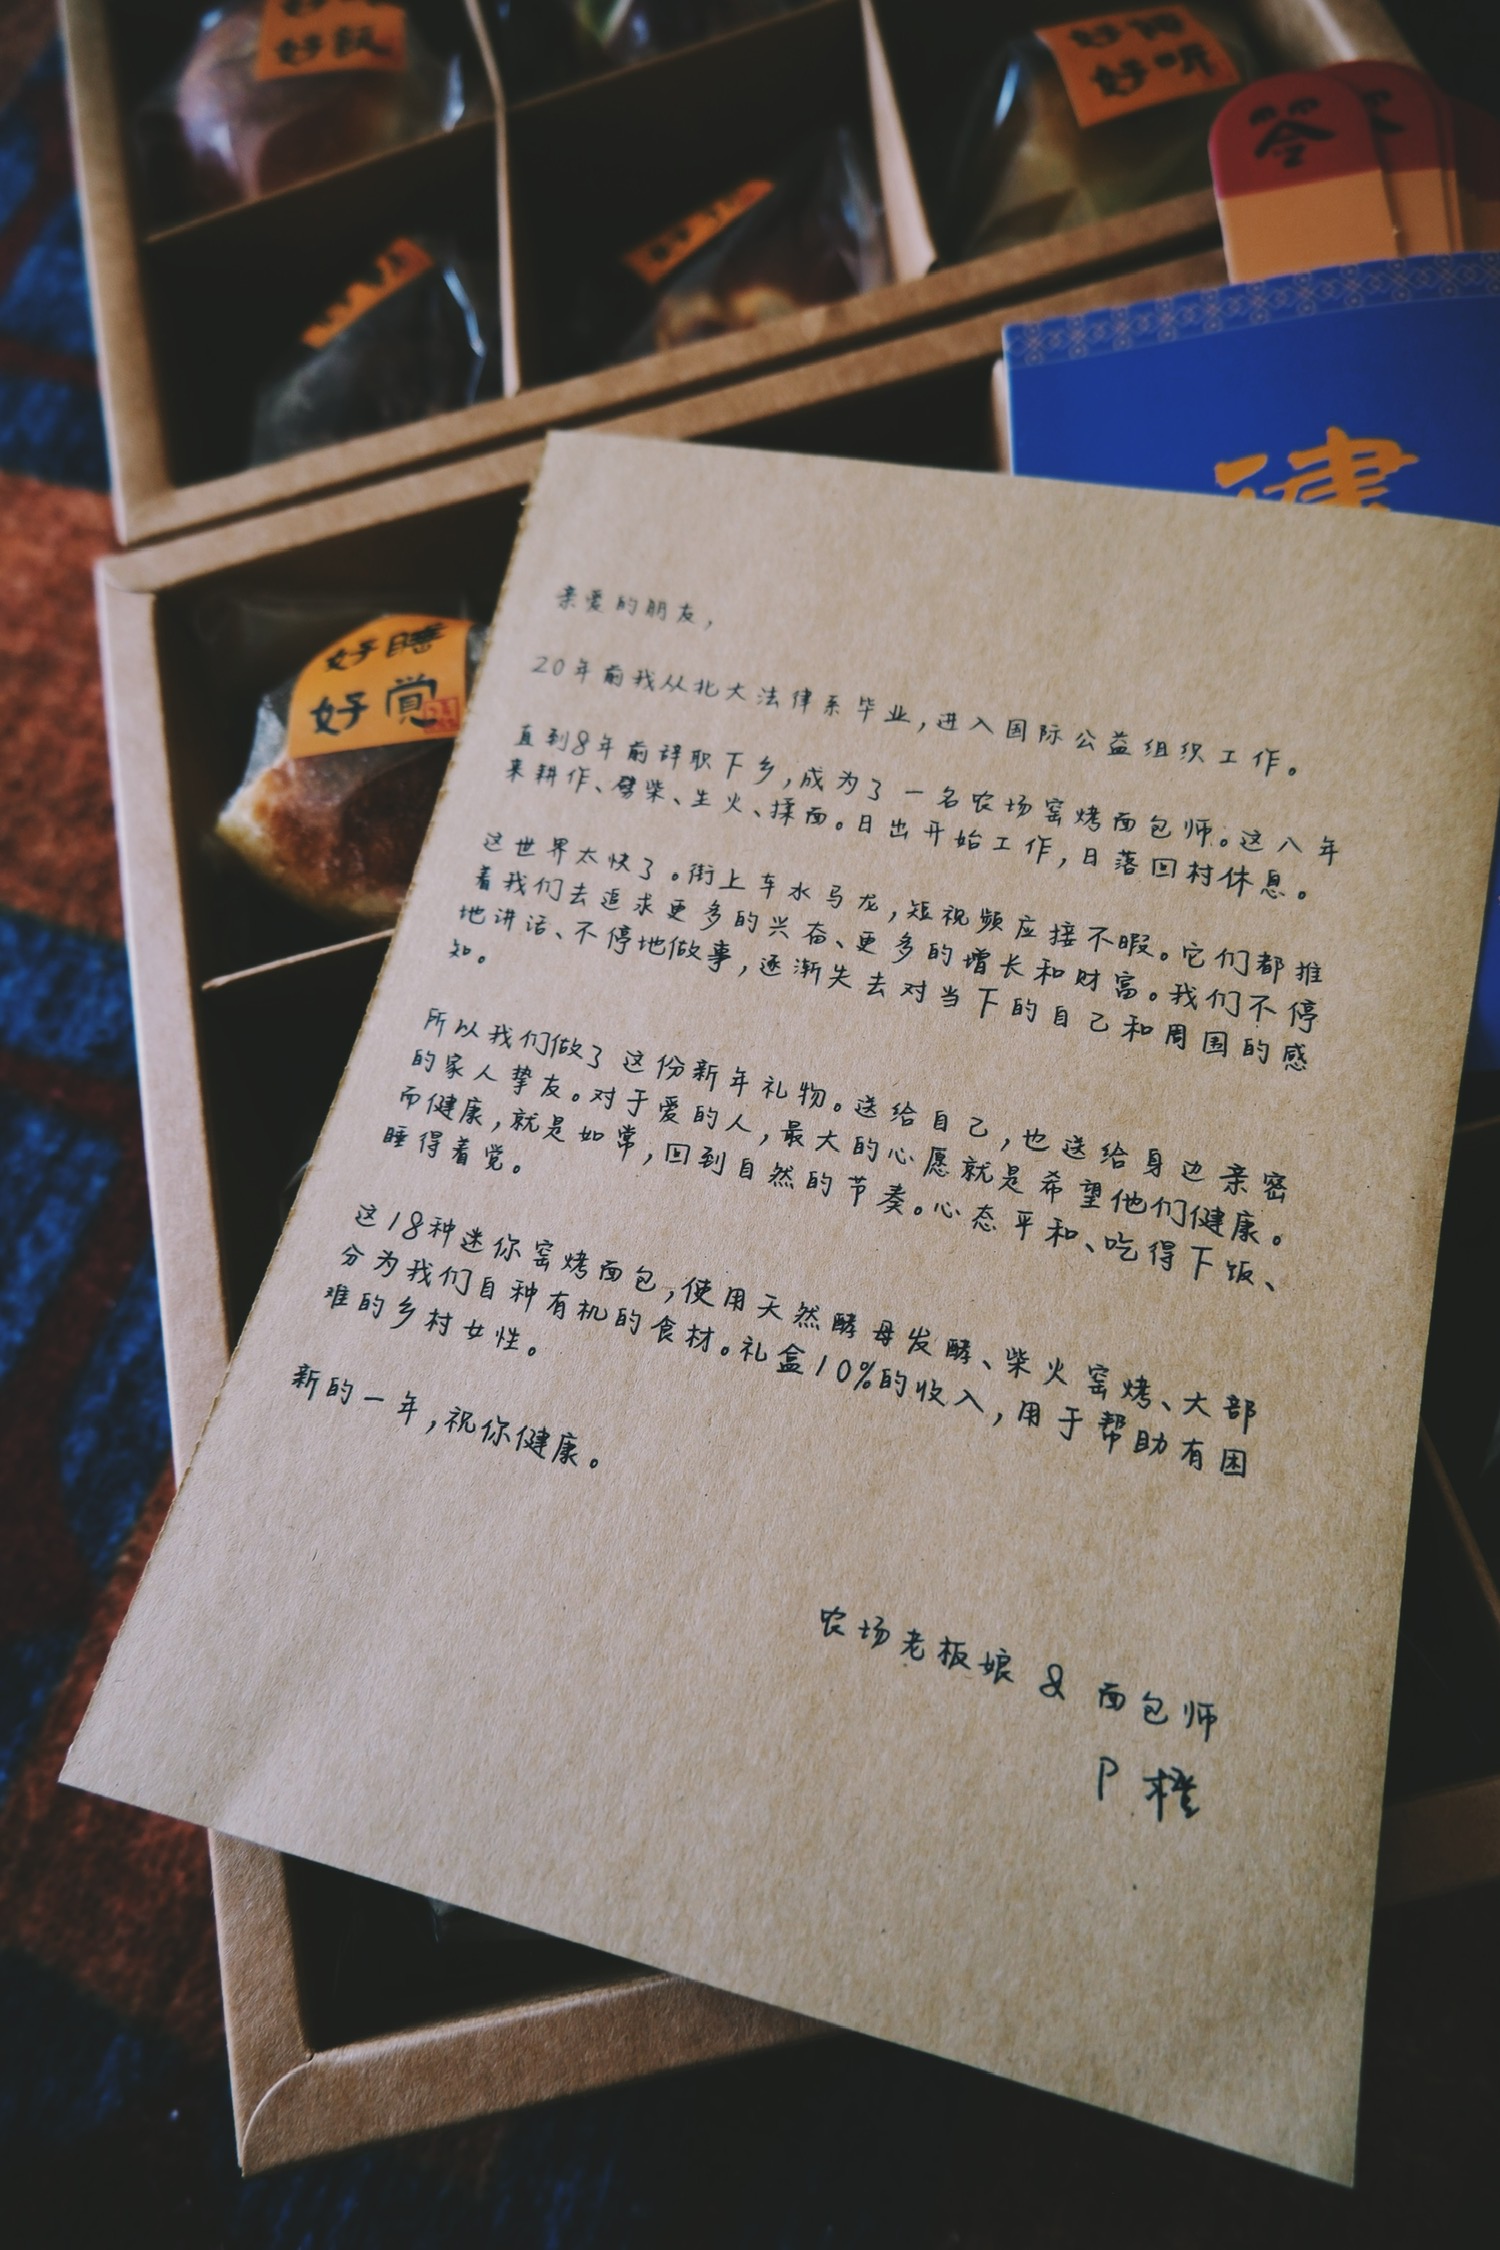 好饭
好听
签
健
好睡
好觉
亲爱的朋友，
20年前我从北大法律系毕业，进入国际公益组织工作。
直到8年前辞职下乡，成为了一名农场窑烤面包师。这八年
来耕作、劈柴、生火、揉面。日出开始工作，日落回村休息。
这世界太快了。街上车水马龙，短视频应接不暇。它们都推
着我们去追求更多的兴奋、更多的增长和财富。我们不停
地讲话、不停地做事，逐渐失去对当下的自己和周围的感
知。
所以我们做了这份新年礼物。送给自己，也送给身边亲密
的家人挚友。对于爱的人，最大的心愿就是希望他们健康。
而健康，就是如常，回到自然的节奏。心态平和、吃得下饭、
睡得着觉。
这18种迷你窑烤面包，使用天然酵母发酵、柴火窑烤、大部
分为我们自种有机的食材。礼盒10%的收入，用于帮助有困
难的乡村女性。
新的一年，祝你健康。
农场老板娘 & 面包师
P橙